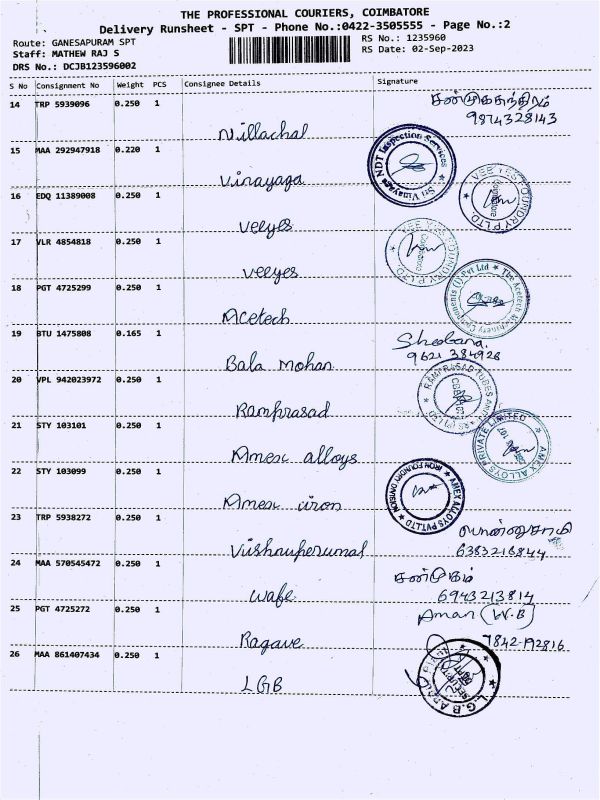 THE PROFESSIONAL COURIERS, COIMBATORE
Delivery Runsheet - SPT - Phone No.:0422-3505555 - Page No.:2
Route: GANESAPURAM SPT
RS No.: 1235960
Staff: MATHEW RAJ S
RS Date: 02-Sep-2023
DRS No.: DCJB123596002
S No Consignment No Weight PCS Consignee Details Signature
14 TRP 5939096 0.250 1 சண்முகசுந்திரம்
9874328143
Nillachal
15 MAA 292947918 0.220 1 Sri Vinayaga NDT Inspection Services
Vinayaga
16 EDQ 11389008 0.250 1 VEE YES FOUNDRY P LTD. Coimbatore
Veeyes
17 VLR 4854818 0.250 1 VEE YES FOUNDRY P LTD. Coimbatore
Veeyes
18 PGT 4725299 0.250 1 The Acetech Machinery Components (I) Pvt Ltd
Acetech
19 BTU 1475808 0.165 1 Shobana.
9621 384928
Bala Mohan
20 VPL 942023972 0.250 1 RAMPRASAD TUBES AND
Ramprasad
21 STY 103101 0.250 1 AMEX ALLOYS PRIVATE LIMITED
Amex alloys
22 STY 103099 0.250 1 AMEX ALLOYS PVT LTD IRON FOUNDRY DIVISION
Amex iron
23 TRP 5938272 0.250 1 பொன்னுசாமி
6383216844
Vishnuperumal
24 MAA 570545472 0.250 1 சண்முகம்
6943213814
Wafe
25 PGT 4725272 0.250 1 Aman (W.B)
7842-192816
Ragave
26 MAA 861407434 0.250 1 L.G.B
LGB